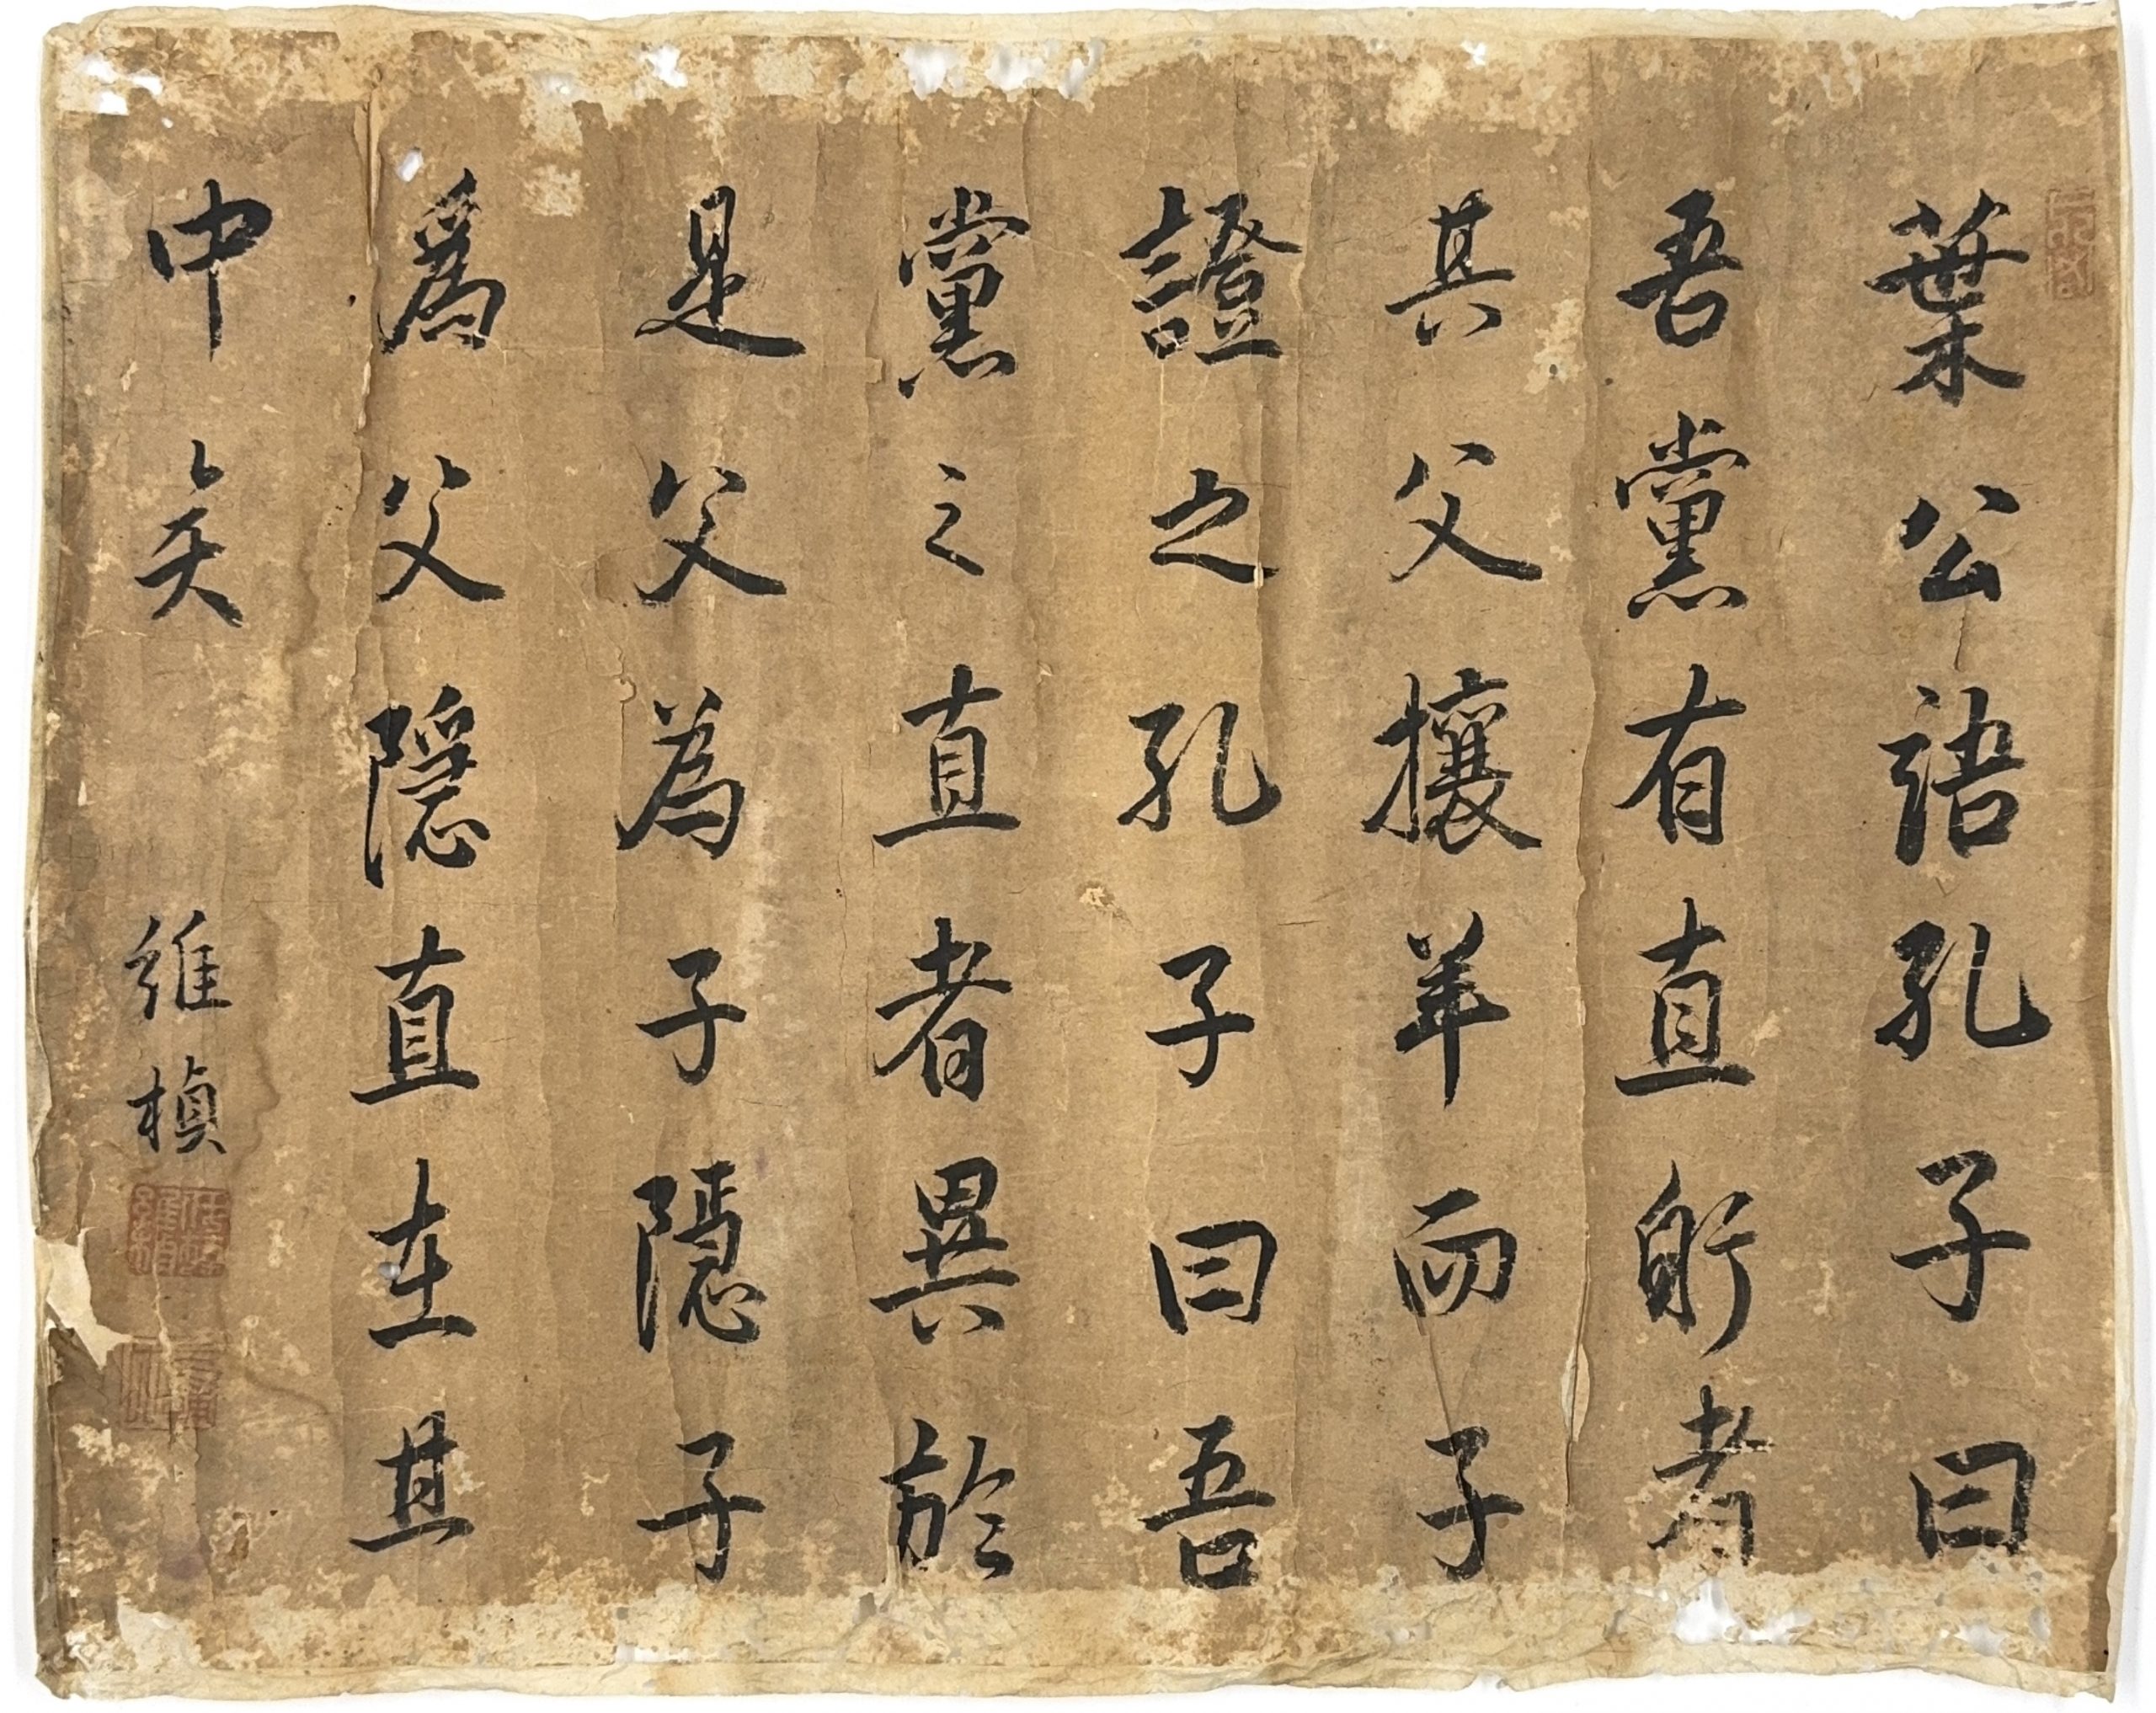 葉公語孔子曰
吾黨有直躬者
其父攘羊而子
證之孔子曰吾
黨之直者異於
是父為子隱子
爲父隱直在其
中矣
維楨